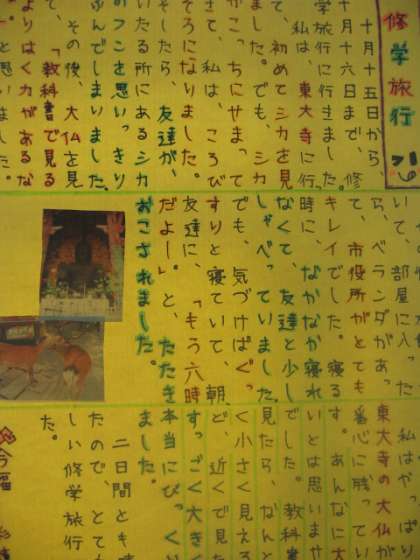 修学旅行
十月十五日から、
十月十六日まで、修
学旅行に行きました。
私は、東大寺に行っ
て、初めてシカを見
ました。でも、シカ
がこっちにせまって
きて、私は、ころび
そうになりました。
そしたら、友達が、
いたる所にあるシカ
のフンを思いっきり
ふんでしまいました。
その後、大仏を見
て、「教科書で見る
よりはく力があるな
」と思いました。
いて、部屋に入った
ら、ベランダがあっ
て、市役所がとても
キレイでした。寝る
時に、なかなか寝れ
なくて、友達と少し
しゃべっていました。
でも、気づけばぐっ
すりと寝ていて、朝、
友達に、「もう六時
だよー!」と、たたき
おこされました。
私はやっぱり
東大寺の大仏が
番心に残ってい
す。あんなに大
いとは思いませ
でした。教科書
見たら、なんと
く小さく見える
ど、近くで見た
すっごく大きく
本当にびっくり
ました。
二日間とも
たので、とても
しい修学旅行
た。
今福